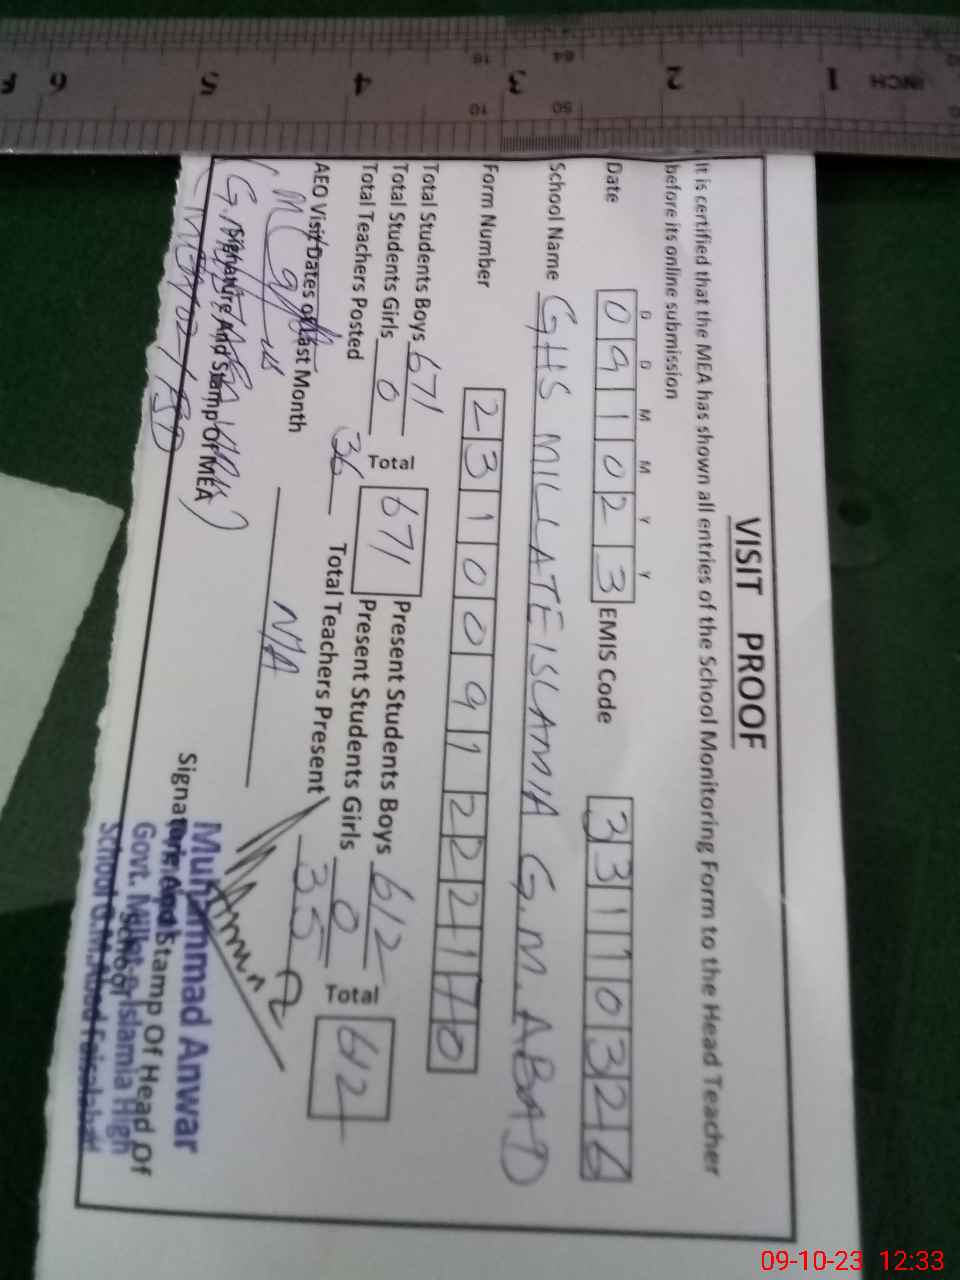 VISIT PROOF
It is certified that the MEA has shown all entries of the School Monitoring Form to the Head Teacher
before its online submission
D D M M Y Y
Date 091023 EMIS Code 33110326
School Name GHS MILLATE ISLAMIA G.M. ABAD
Form Number 2310091222110
Total Students Boys 671 Total 671 Present Students Boys 612 Total 612
Total Students Girls 0 Present Students Girls 0
Total Teachers Posted 36 Total Teachers Present 35
AEO Visit Dates of Last Month N/A
Signature And Stamp Of MEA
Signature And Stamp Of Head Of
School
Muhammad Anwar
Govt. Millat-e-Islamia High
School G.M.Abad Faisalabad
INCH 1 2 3 4 5 6
09-10-23 12:33